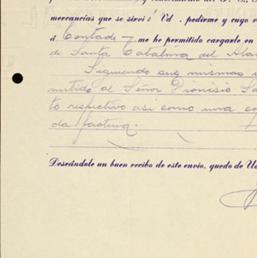 mercancias que se sirvió Vd. pedirme y cuyo
á Contado me he permitido cargarle en
de Santa Catalina del
Siguiendo sus mismas
mitido al Señor Dionisio
to respectivo así como una
da factura.
Deseándole un buen recibo de este envío, quedo de